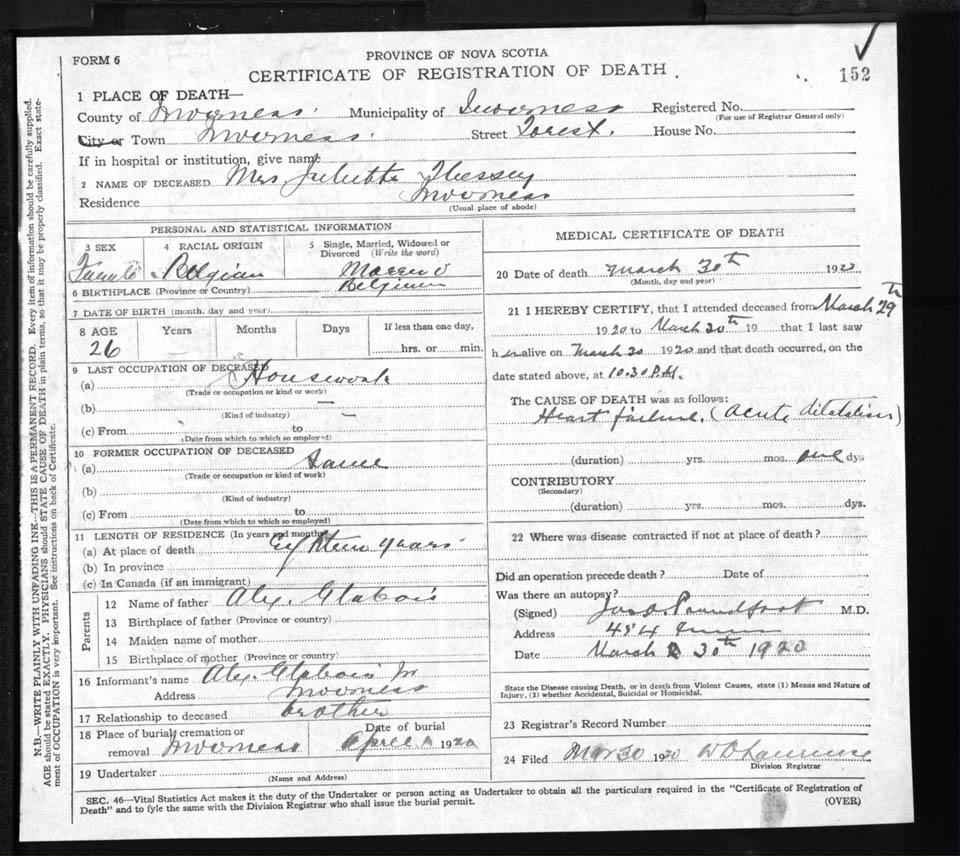 FORM 6
PROVINCE OF NOVA SCOTIA
CERTIFICATE OF REGISTRATION OF DEATH.
152
1 PLACE OF DEATH—
County of Inverness. Municipality of Inverness Registered No.
(For use of Registrar General only)
City or Town Inverness. Street Forest. House No.
If in hospital or institution, give name
2 NAME OF DECEASED Mrs Juliette
Residence Inverness
(Usual place of abode)
PERSONAL AND STATISTICAL INFORMATION
3 SEX 4 RACIAL ORIGIN 5 Single, Married, Widowed or Divorced (Write the word)
Female Belgian Married
6 BIRTHPLACE (Province or Country) Belgium
7 DATE OF BIRTH (month, day and year)
8 AGE Years Months Days If less than one day,
26 hrs. or min.
9 LAST OCCUPATION OF DECEASED
(a) Housework
(Trade or occupation or kind or work)
(b) —
(Kind of industry)
(c) From to —
(Date from which to which so employed)
10 FORMER OCCUPATION OF DECEASED
(a) Same
(Trade or occupation or kind of work)
(b)
(Kind of industry)
(c) From to
(Date from which to which so employed)
11 LENGTH OF RESIDENCE (In years and months)
(a) At place of death years
(b) In province
(c) In Canada (if an immigrant)
Parents
12 Name of father Alex. Glabois
13 Birthplace of father (Province or country)
14 Maiden name of mother
15 Birthplace of mother (Province or country)
16 Informant's name Alex. Glabois Jr
Address Inverness
17 Relationship to deceased brother
18 Place of burial, cremation or removal Inverness Date of burial April 1 1920
19 Undertaker
(Name and Address)
MEDICAL CERTIFICATE OF DEATH
20 Date of death March 30th 1920
(Month, day and year)
21 I HEREBY CERTIFY, that I attended deceased from March 29th
1920 to March 30th 19 that I last saw
her alive on March 30 1920 and that death occurred, on the
date stated above, at 10.30 P.M.
The CAUSE OF DEATH was as follows:
Heart failure. (Acute dilatation)
(duration) yrs. mos. one dys
CONTRIBUTORY
(Secondary)
(duration) yrs. mos. dys.
22 Where was disease contracted if not at place of death?
Did an operation precede death? Date of
Was there an autopsy?
(Signed) Proudfoot M.D.
Address
Date March 30th 1920
State the Disease causing Death, or in death from Violent Causes, state (1) Means and Nature of Injury, (2) whether Accidental, Suicidal or Homicidal.
23 Registrar's Record Number
24 Filed Mar 30 1920 W D Lawrence
Division Registrar
SEC. 46—Vital Statistics Act makes it the duty of the Undertaker or person acting as Undertaker to obtain all the particulars required in the "Certificate of Registration of
Death" and to fyle the same with the Division Registrar who shall issue the burial permit.
(OVER)
N.B.—WRITE PLAINLY WITH UNFADING INK—THIS IS A PERMANENT RECORD. Every item of information should be carefully supplied.
AGE should be stated EXACTLY. PHYSICIANS should STATE CAUSE OF DEATH in plain terms, so that it may be properly classified. Exact state-
ment of OCCUPATION is very important. See instructions on back of Certificate.